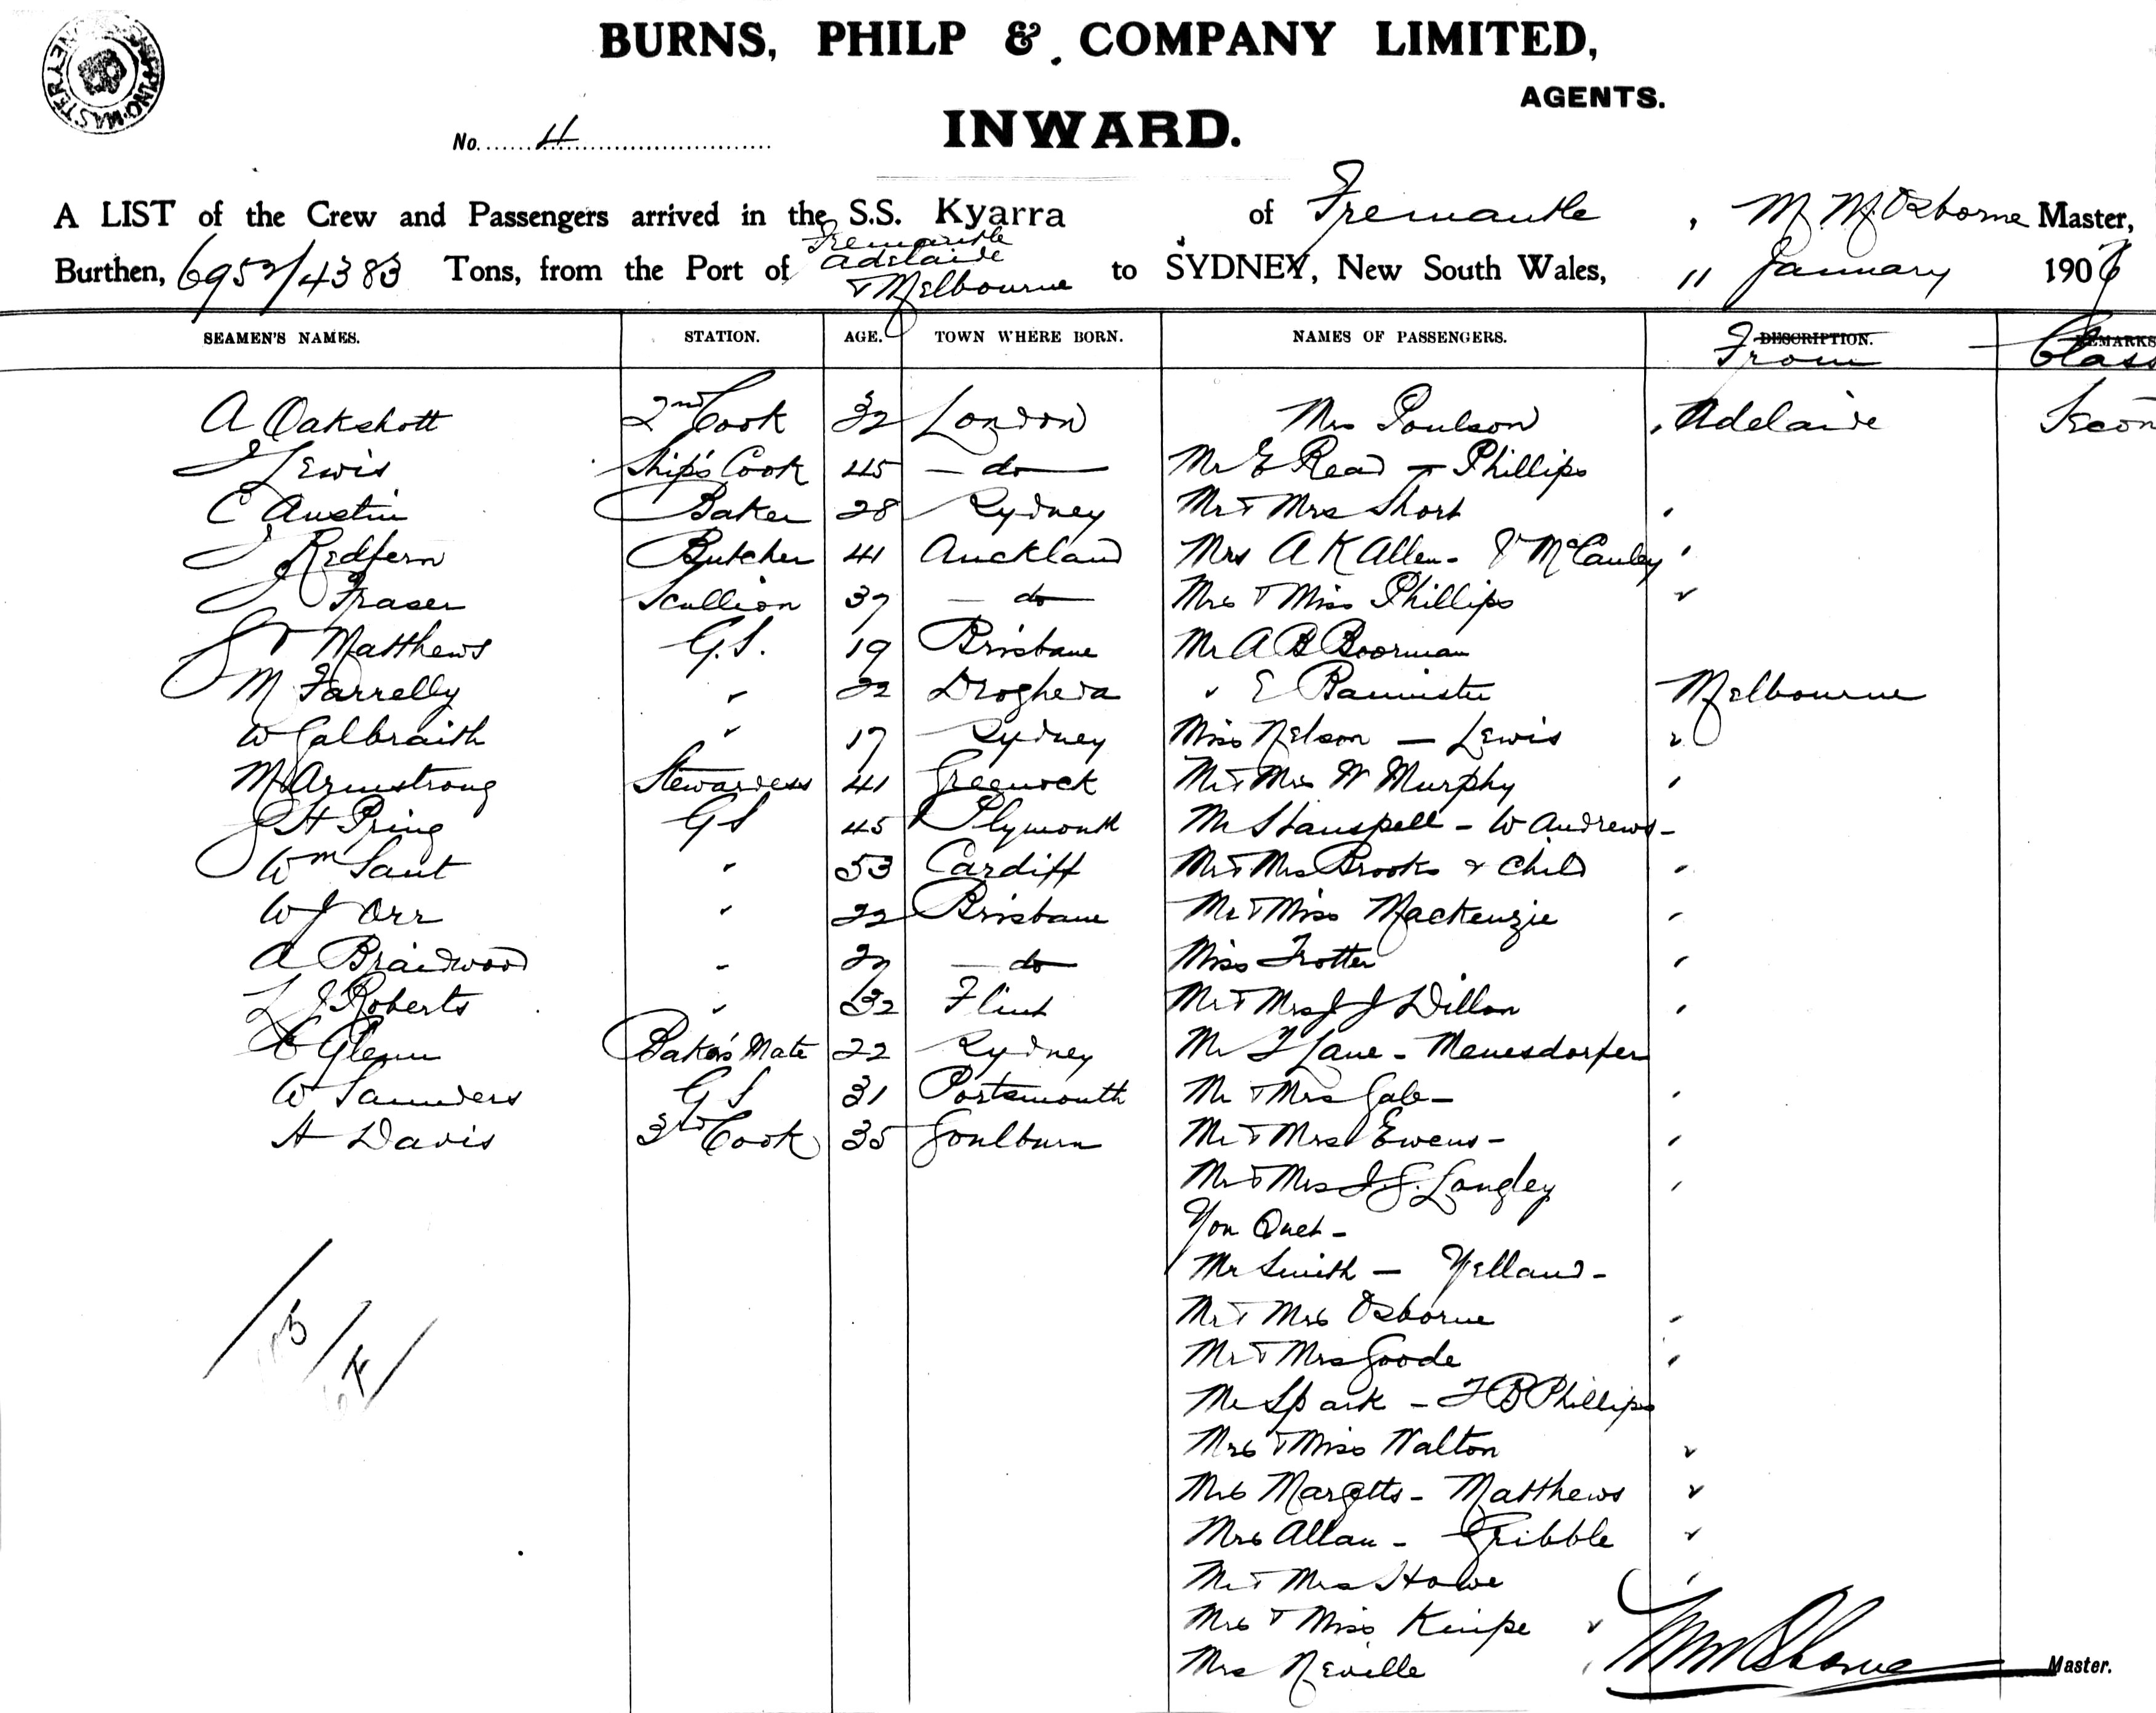 BURNS, PHILP & COMPANY LIMITED,
AGENTS.
INWARD.
No. 4
A LIST of the Crew and Passengers arrived in the S.S. Kyarra of Fremantle, M. M. Osborne Master,
Fremantle
Adelaide
Burthen, 6953/4383 Tons, from the Port of & Melbourne to SYDNEY, New South Wales, 11 January 1906
SEAMEN'S NAMES. STATION. AGE. TOWN WHERE BORN. NAMES OF PASSENGERS. DESCRIPTION. REMARKS
From Class
A Oakshott 2nd Cook 32 London Mrs Poulson Adelaide Secon
J Lewis Ship's Cook 45 — do — Mr E Read — Phillips
C Austin Baker 28 Sydney Mr & Mrs Short "
J Redfern Butcher 41 Auckland Mrs A K Allen - & McCauley "
J Fraser Scullion 37 — do Mrs & Miss Phillips "
J Matthews G.S. 19 Brisbane Mr A B Boorman
M Farrelly " 22 Drogheda " E Bannister Melbourne
W Galbraith " 17 Sydney Miss Nelson — Lewis "
M Armstrong Stewardess 41 Greenock Mr & Mrs W Murphy "
J H Pring G S 45 Plymouth Mr Stanspell - W Andrews -
Wm Saut " 53 Cardiff Mr & Mrs Brooks & Child "
W J Orr " 22 Brisbane Mr & Miss Mackenzie "
A Braidwood " 27 — do Miss Trotter "
L J Roberts " 32 Flint Mr & Mrs J J Dillon "
Glenn Baker's Mate 22 Sydney Mr T Lane - Menesdorfer
W Saunders G S 31 Portsmouth Mr & Mrs Gale - "
H Davis 3rd Cook 35 Goulburn Mr & Mrs Ewens - "
Mr & Mrs J. G. Langley "
You Quet -
Mr Smith — Yelland -
Mr & Mrs Osborne "
Mr & Mrs Goode "
Mr Spark - F B Phillips
Mrs & Miss Walton "
Mrs Margetts - Matthews "
Mrs Allan - Gribble "
Mr & Mrs Howe "
Mrs & Miss Knipe "
Mrs Neville " M M Osborne Master.